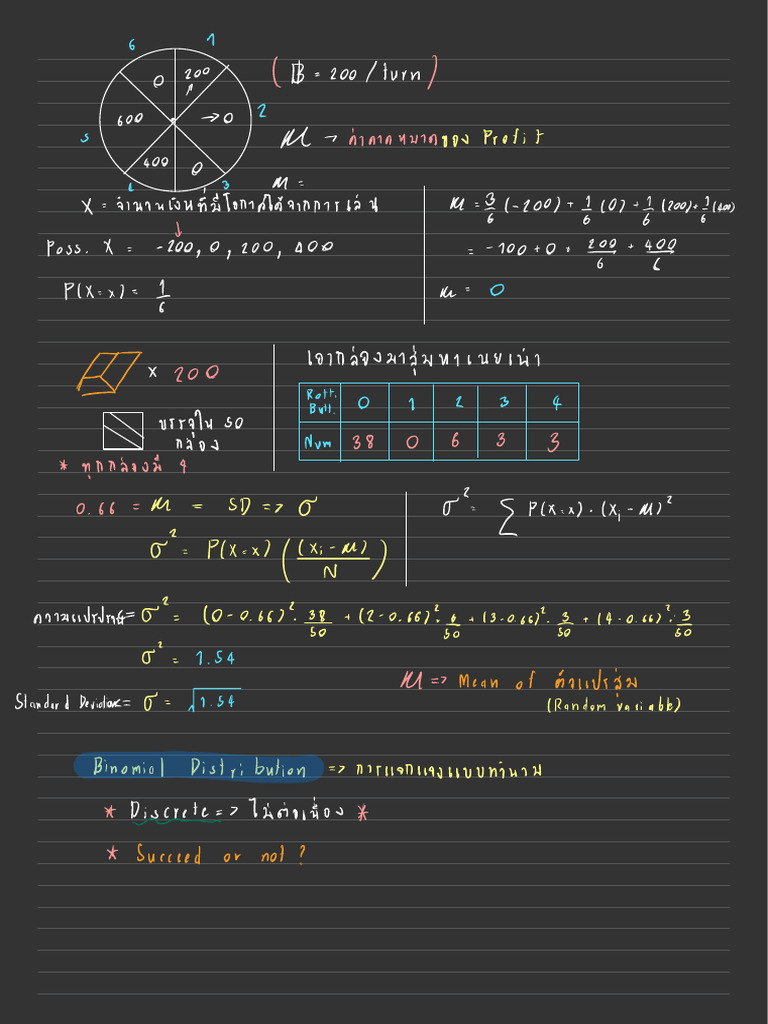 6 1
0 200
(฿ = 200 / turn)
600 → 0 2
5 μ → ค่าคาดหมายของ Profit
400 0
4 3 μ =
X = จำนวนเงินที่มีโอกาสได้จากการเล่น
Poss. X = -200, 0, 200, 400
P(X=x) = 1/6
μ = 3/6 (-200) + 1/6 (0) + 1/6 (200) + 1/6 (400)
= -100 + 0 + 200/6 + 400/6
μ = 0
x 200
บรรจุใน 50
กล่อง
* ทุกกล่องมี 4
เอากล่องมาสุ่มหาเนยเน่า
Rott. Butt. 0 1 2 3 4
Num 38 0 6 3 3
0.66 = μ = SD => σ
σ² = P(X=x) ((Xi - μ)/N)
σ² = ∑ P(X=x) · (Xi - μ)²
ความแปรปรวน = σ² = (0-0.66)² · 38/50 + (2-0.66)² · 6/50 + (3-0.66)² · 3/50 + (4-0.66)² · 3/50
σ² = 1.54
Standard Deviation = σ = √1.54
μ => Mean of ตัวแปรสุ่ม
(Random variabb)
Binomial Distribution => การแจกแจงแบบทวินาม
* Discrete => ไม่ต่อเนื่อง *
* Succeed or not?